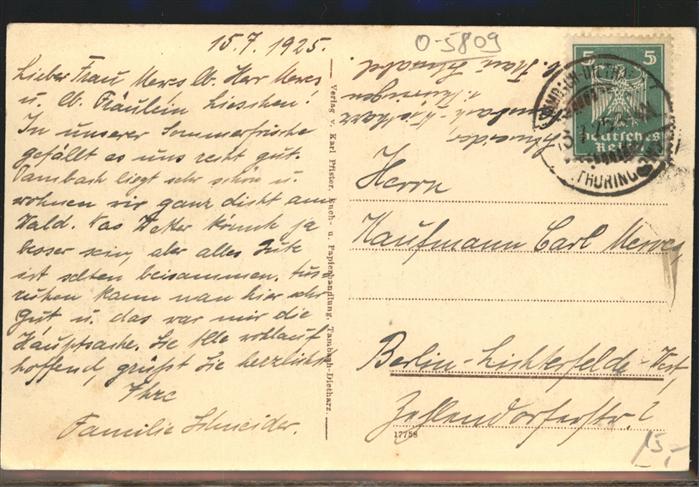 15.7.1925.
Lieber Frau Mewes lb. Herr Mewes
u. lb. Fräulein Lieschen!
In unserer Sommerfrische
gefällt es uns recht gut.
Tambach liegt sehr schön u.
wohnen wir ganz dicht am
Wald. Das Wetter könnte ja
besser sein, aber alles Gute
ist selten beisammen. Aus-
ruhen kann man hier sehr
gut u. das war mir die
Hauptsache. Sie Alle wohlauf
hoffend, grüßt Sie herzlichst
Ihre
Familie Schneider.
Verlag v. Karl Pfister, Buch- u. Papierhandlung, Tambach-Dietharz.
0-5809
Schneider,
Tambach-Dietharz
i. Thüringen
5 5
Deutsches
Reich
TAMBACH-DIETHARZ
THÜRING
Herrn
Kaufmann Carl Mewes,
Berlin-Lichterfelde-West,
Zehlendorferstr. 2
17758
15,-